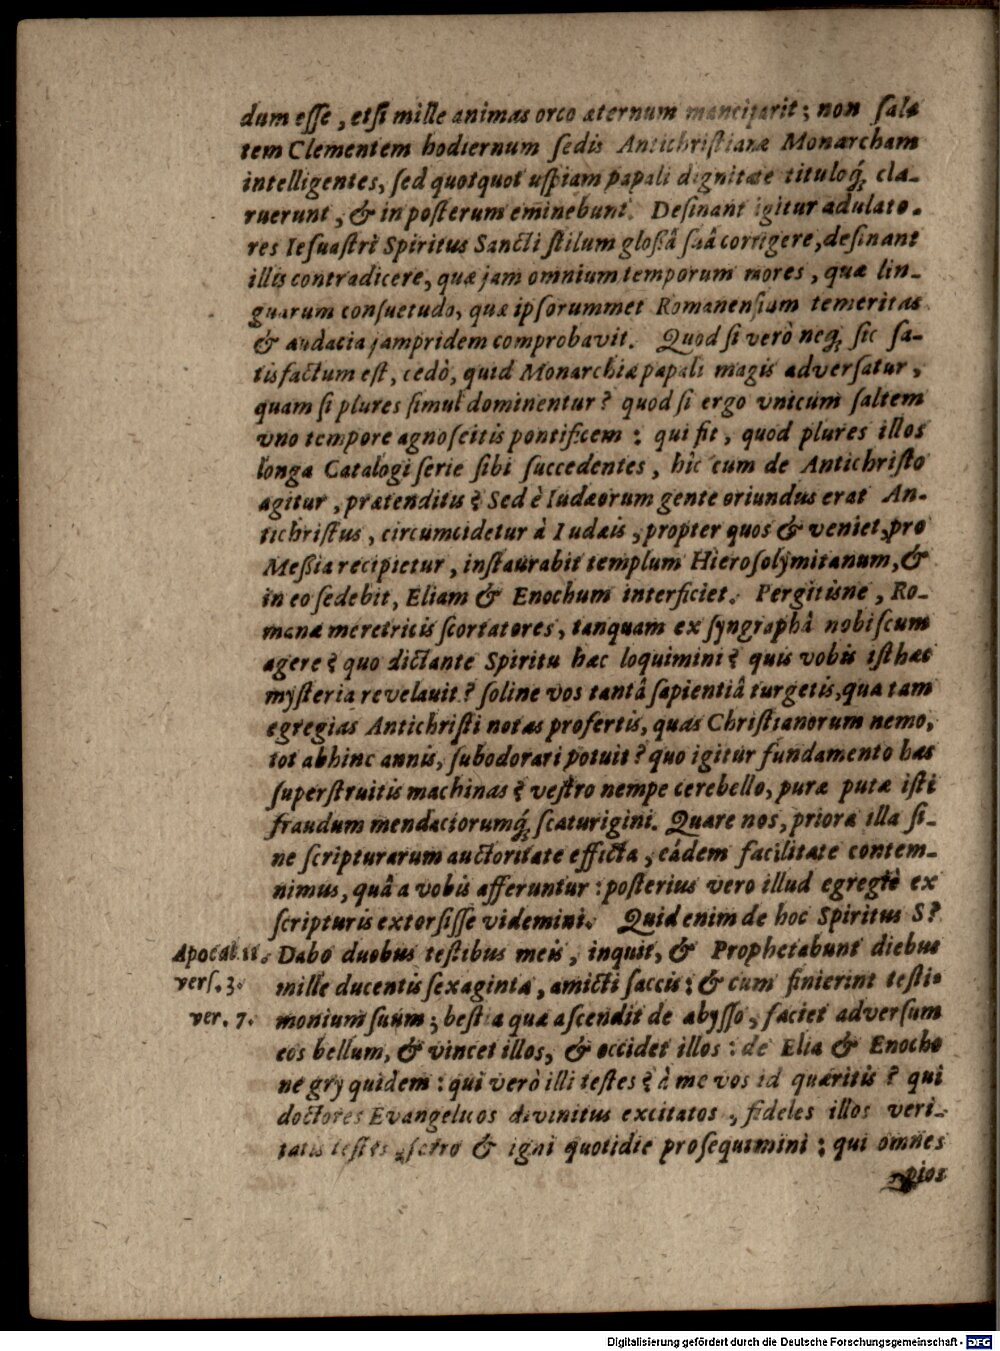 dum esse, etsi mille animas orco æternum manciparit; non sal-
tem Clementem hodiernum sedis Antichristianæ Monarcham
intelligentes, sed quotquot uspiam papali dignitate tituloq́; cla-
ruerunt, & in posterum eminebunt. Desinant igitur adulato-
res Iesuastri Spiritus Sancti stilum glossâ suâ corrigere, desinant
illis contradicere, quæ jam omnium temporum mores, quæ lin-
guarum consuetudo, quæ ipsorummet Romanensium temeritas
& audacia jampridem comprobavit. Quod si verò neq; sic sa-
tisfactum est, cedò, quid Monarchiæ papali magis adversatur,
quam si plures simul dominentur? quod si ergo vnicum saltem
vno tempore agnoscitis pontificem: qui fit, quod plures illos
longa Catalogi serie sibi succedentes, hic cum de Antichristo
agitur, prætenditis? Sed è Iudæorum gente oriundus erat An-
tichristus, circumcidetur à Iudæis, propter quos & veniet, pro
Messia recipietur, instaurabit templum Hierosolymitanum, &
in eo sedebit, Eliam & Enochum interficiet. Pergitisne, Ro-
manæ meretricis scortatores, tanquam ex syngraphâ nobiscum
agere? quo dictante Spiritu hæc loquimini? quis vobis isthæc
mysteria revelauit? soline vos tantâ sapientiâ turgetis, qua tam
egregias Antichristi notas profertis, quas Christianorum nemo,
tot abhinc annis, subodorari potuit? quo igitur fundamento has
superstruitis machinas? vestro nempe cerebello, puræ putæ isti
fraudum mendaciorumq́; scaturigini. Quare nos, priora illa si-
ne scripturarum auctoritate efficta, eâdem facilitate contem-
nimus, quâ a vobis afferuntur: posterius vero illud egregiè ex
scripturis extorsisse videmini. Quid enim de hoc Spiritus S?
Apocal. 11. Dabo duobus testibus meis, inquit, & Prophetabunt diebus
vers. 3. mille ducentis sexaginta, amicti saccis: & cum finierint testi-
ver. 7. monium suum; bestia quæ ascendit de abysso, faciet adversum
eos bellum, & vincet illos, & occidet illos: de Elia & Enocho
ne gry quidem: qui verò illi testes? à me vos id quæritis? qui
doctores Evangelicos divinitus excitatos, fideles illos veri-
tatis testes, ferro & igni quotidie prosequimini; qui omnes
pios
Digitalisierung gefördert durch die Deutsche Forschungsgemeinschaft - DFG